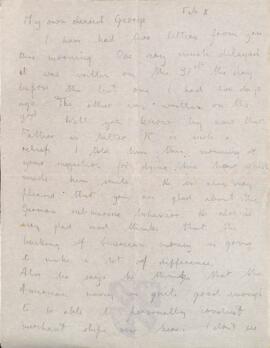 Feb 8
My own dearest George
I have had two letters from you
this morning. One very much delayed
it was written on the 31st the day
before the last one I had two days
ago. The other was written on the
3rd. Well you know by now that
Father is better. It is such a
relief. I told him this morning of
your suggestion for dying his hair which
made him smile. He is very very
pleased that you are glad about the
German submarine behavior. He also is
very glad and thinks that the
backing of American money is going
to make a lot of difference.
Also he says he thinks that the
American navy is quite good enough
to be able to personally
merchant ships over here. I don't see